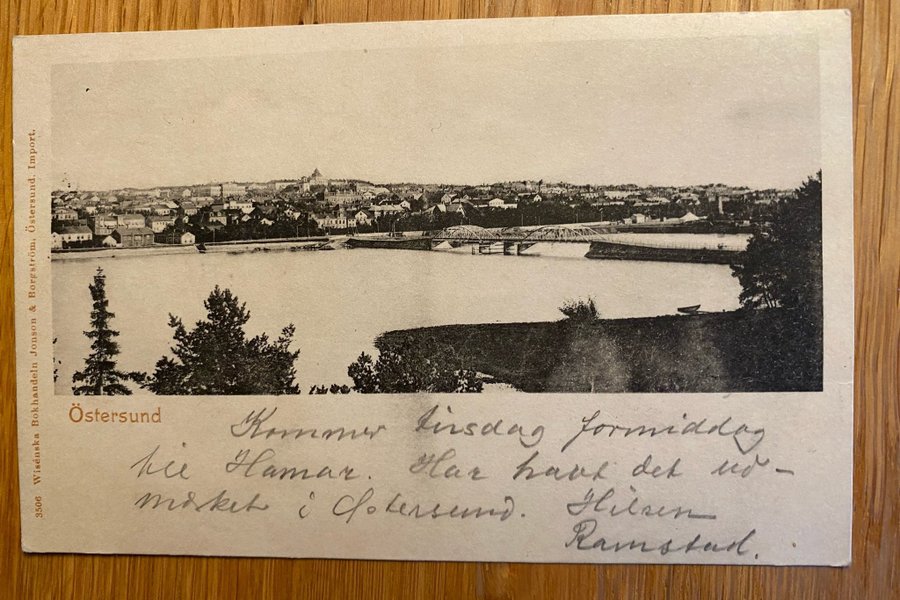 3506 Wisénska Bokhandeln Jonson & Borgström, Östersund. Import.
Östersund
Kommer tirsdag formiddag
til Hamar. Har havt det ud-
mærket i Østersund. Hilsen
Ramstad.